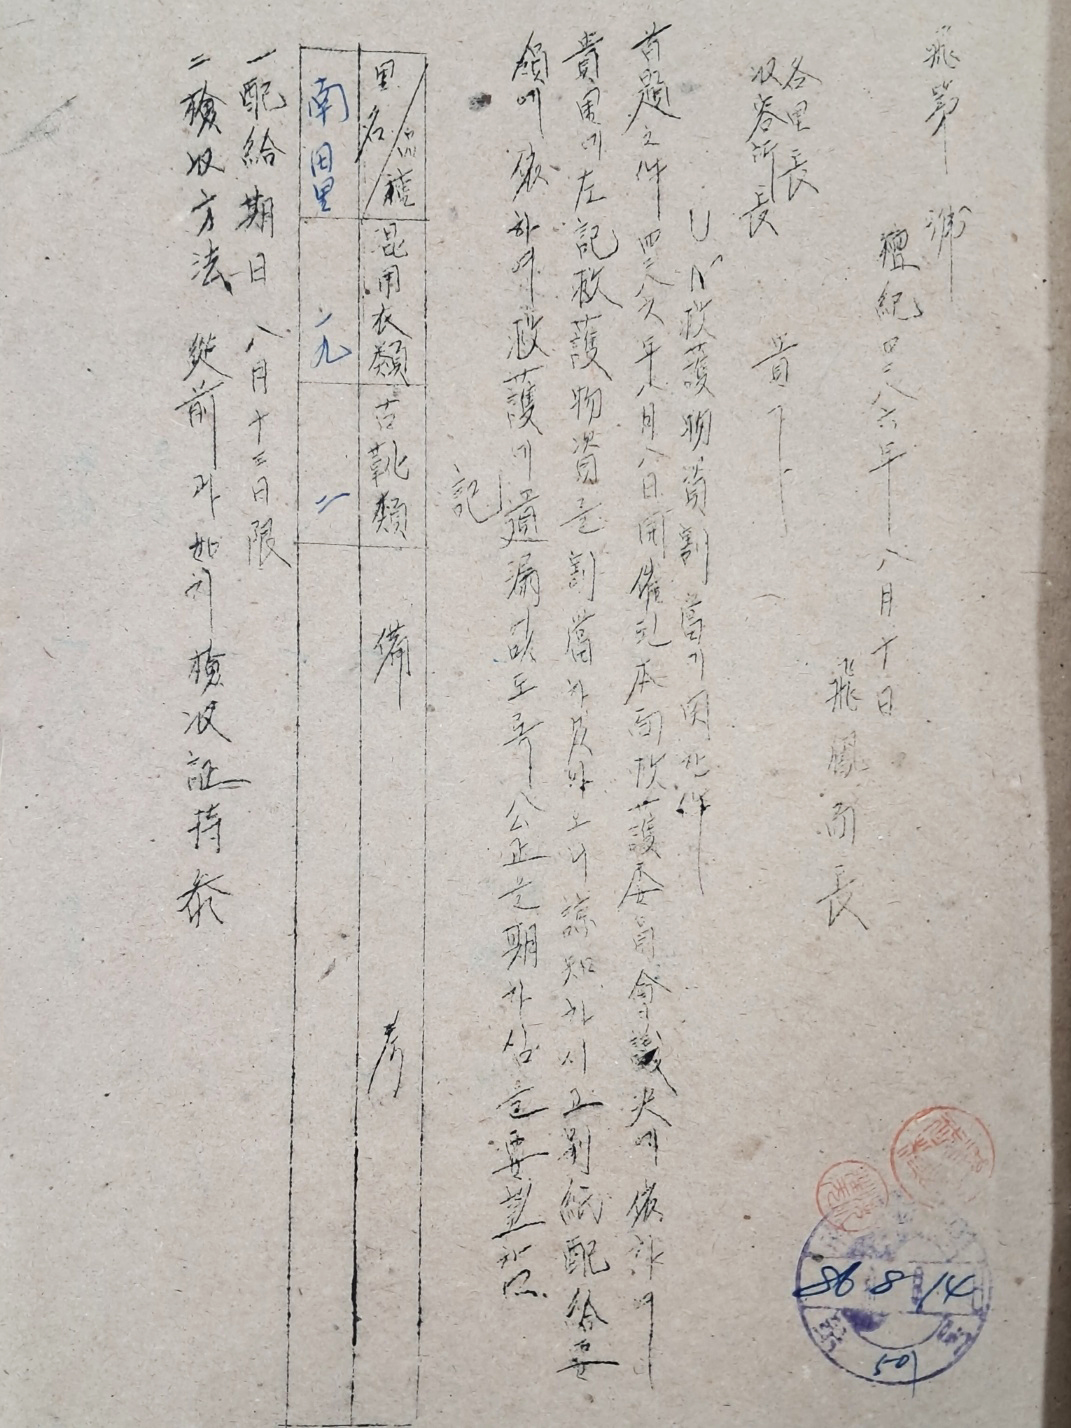 飛鳳 第 号
檀紀四二八六年 八月十日
飛鳳面長
各里長
收容所長
貴下
UN救護物資割當에 関한 件
首題之件 四二八六年八月八日開催한 本面救護委員會議決에 依하여
貴里에 左記救護物資을 割當하였아오니 諒知하시고 別紙配給要
領에 依하여 救護에 遺漏없도록 公正을 期하심을 要望함
記
里名 品種 混用衣類 古靴類 備考
南田里 二九 二
一 配給期日 八月十三日限
二 檢收方法 從前과 如히 檢收証持參
86 8 14
501